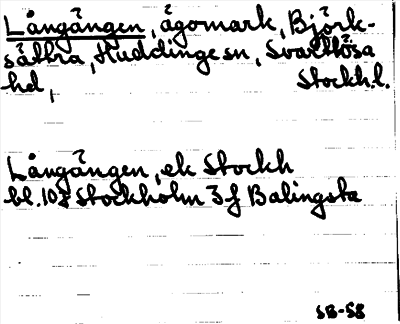 Långängen, ägomark, Björk-
sättra, Huddinge sn, Svartlösa
hd, Stockh.l.
Långängen, ek Stockh
bl. 108 Stockholm 3f Balingsta
SB-58